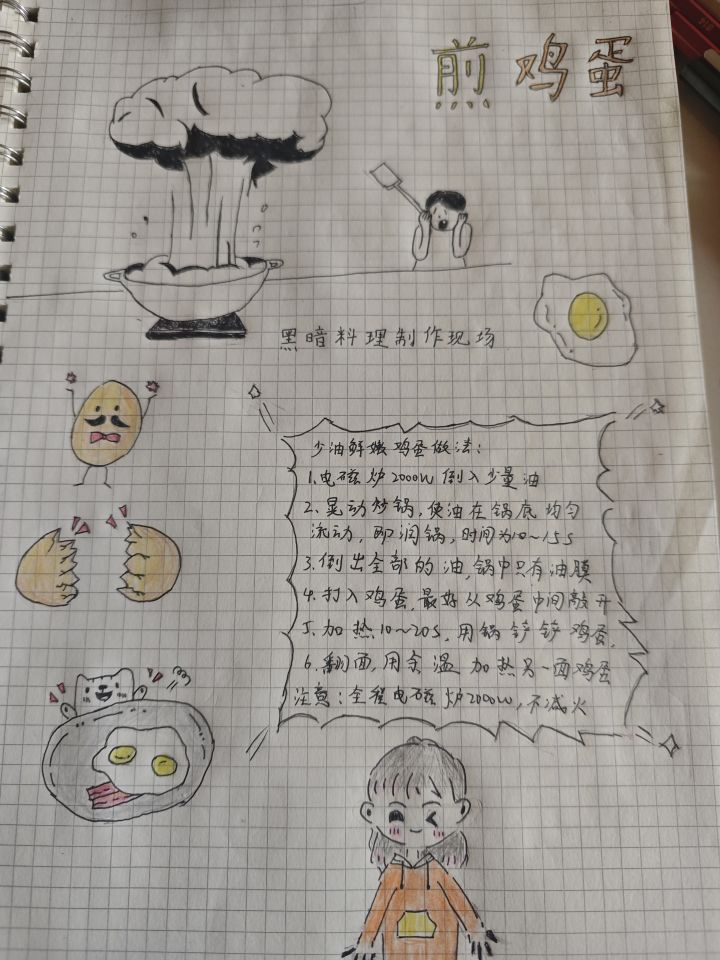 煎鸡蛋
黑暗料理制作现场
少油鲜嫩鸡蛋做法:
1.电磁炉2000W倒入少量油
2.晃动炒锅,使油在锅底均匀
滚动,即润锅,时间为10~15s
3.倒出全部的油,锅中只有油膜
4.打入鸡蛋,最好从鸡蛋中间敲开
5.加热10~20s,用锅铲铲鸡蛋,
6.翻面,用余温加热另一面鸡蛋
注意:全程电磁炉2000W,不减火